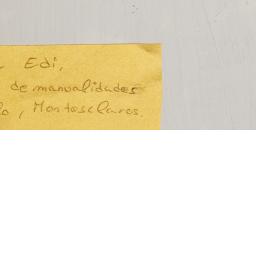 Edi,
de manualidades
, Montesclaros.